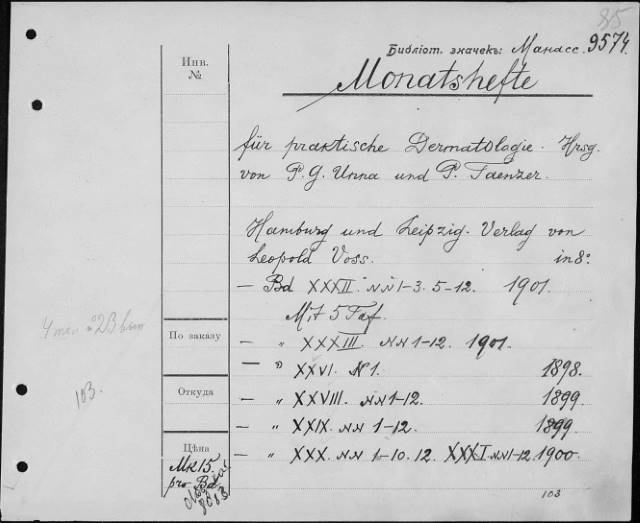 85
Библіот. значекъ: Манасс. 9574.
Инв.
№
Monatshefte
für praktische Dermatologie. Hrsg.
von P. G. Unna und P. Taenzer.
Hamburg und Leipzig. Verlag von
Leopold Voss. in 8°
— Bd XXXII. NN 1-3. 5-12. 1901.
Mit 5 Taf.
По заказу
— " XXXIII. NN 1-12. 1901.
— " XXVI. N 1. 1898.
Откуда
— " XXVIII. NN 1-12. 1899.
103.
— " XXIX. NN 1-12. 1899.
Цѣна
— " XXX. NN 1-10. 12. XXXI. NN 1-12. 1900.
Mk 15.
pro Bd
103